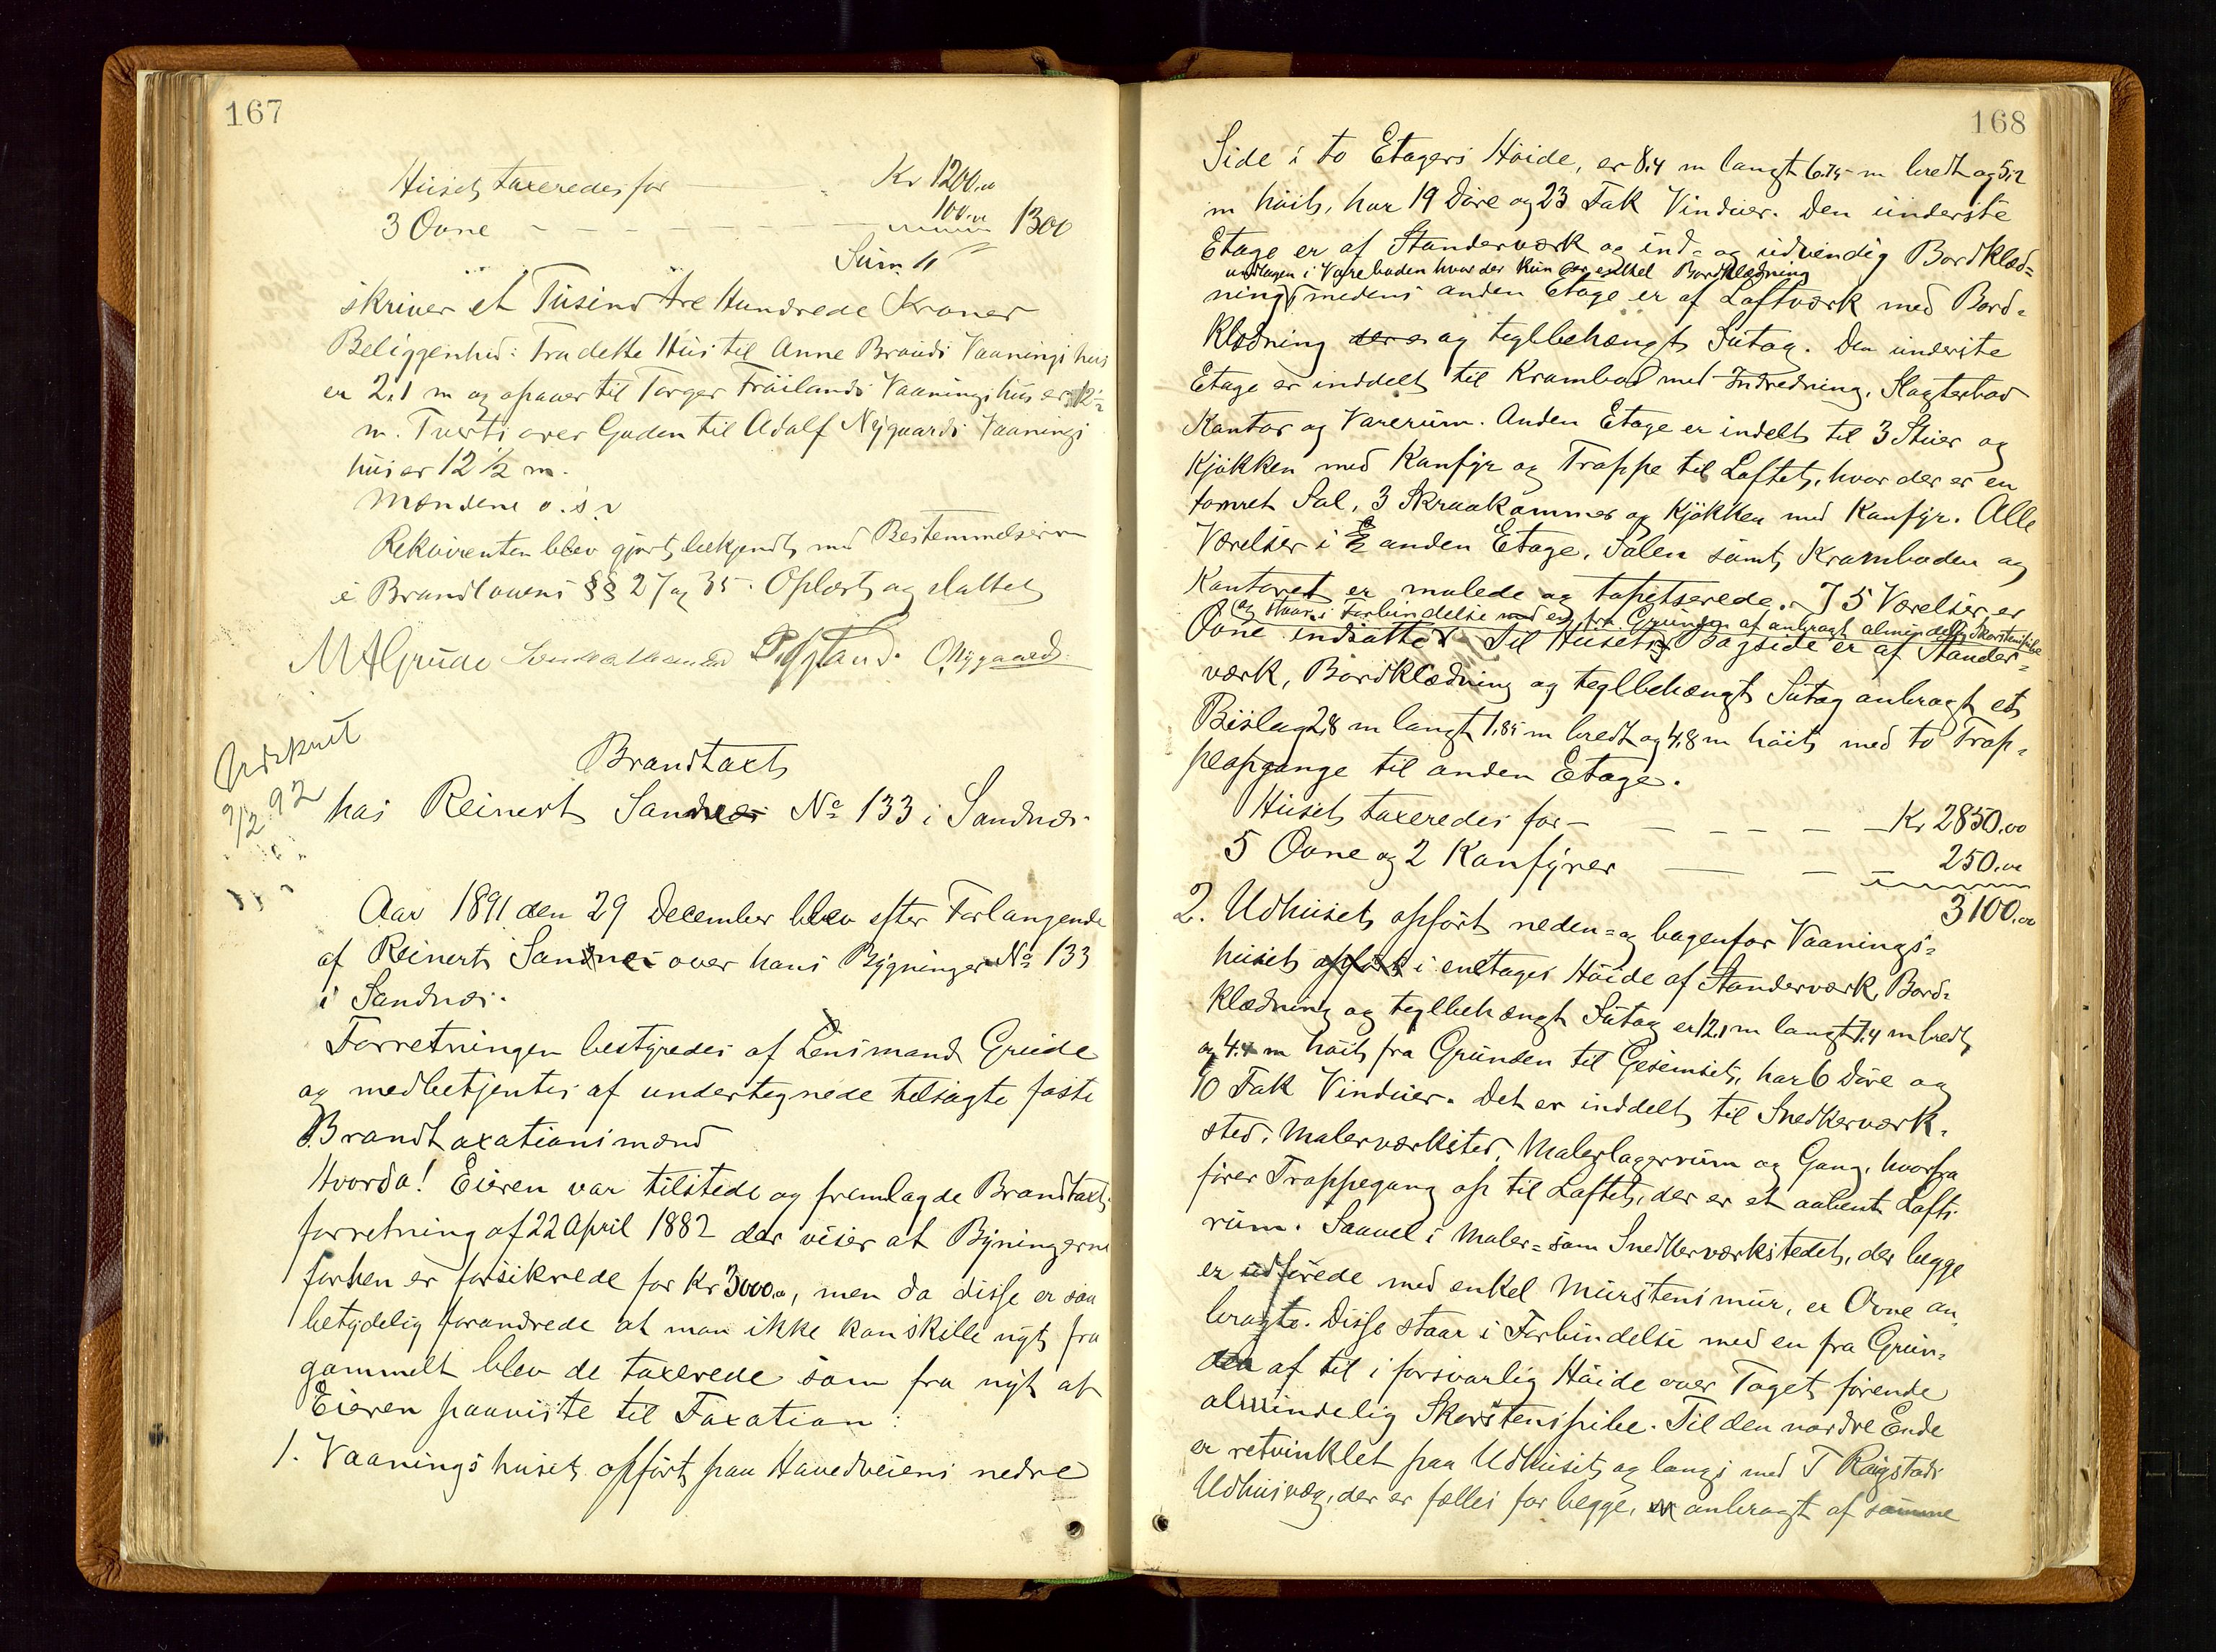 167
Huset taxeredes for — Kr 1200.00
3 Ovne - - - - - - - 100.00 1300
Sum
skriver et Tusind tre Hundrede Kroner
Beliggenhed: Fra dette Hus til Anne Brauds Vaaningshus
er 2,1 m og opover til Torger Fröilands Vaaningshus er 12½
m. Tverts over Gaden til Adolf Nygaards Vaanings
hus er 12 ½ m.
Mændene o.s.v
Rekvirenten blev gjort bekjendt med Bestemmelserne
i Brandlovens §§ 27 og 35. Oplæst og sluttet
M A Grude O Nygaard
Udskrevet
9/2 92
Brandtaxt
hos Reinert Sandnes No 133 i Sandnes.
Aar 1891 den 29 December blev efter Forlangende
af Reinert Sandnes over hans Bygninger No 133
i Sandnes.
Forretningen bestyredes af Lensmand Grude
og medbetjentes af undertegnede tilsagte faste
Brandtaxationsmænd
Hvorda! Eieren var tilstede og fremlagde Brandtaxt
forretning af 22 April 1882 der viser at Bygningerne
forhen er forsikrede for Kr 3000.00, men da disse er saa
betydelig forandrede at man ikke kan skille nyt fra
gammelt blev de taxerede som fra nyt af
Eieren paaviste til Taxation:
1. Vaaningshuset opført paa Hovedveiens nedre
168
Side i to Etagers Høide, er 8,4 m langt 6.75 m bredt og 5,2
m höit, har 19 Döre og 23 Fak Vinduer. Den underste
Etage er af Standerværk og ind- og udvendig Bordklæd=
undtagen i Vareboden hvor der kun er enkel Bordklædning
ning medens anden Etage er af Laftværk med Bord=
klædning og teglbehængt Sutag. Den underste
Etage er inddelt til Krambod med Indredning, Slagterbod
Kontor og Varerum. Anden Etage er indelt til 3 Stuer og
Kjøkken med Komfyr og Trappe til Loftet, hvor der er en
tømret Sal, 3 Skraakammer og Kjøkken med Komfyr. Alle
Værelser i anden Etage, Salen samt Kramboden og
Kontoret er malede og tapetserede. I 5 Værelser er
og staar i Forbindelse med en fra Grunden af anbragt almindelig Skorstenspibe
Ovne indsatte. Til Husets Bagside er af Stander=
værk, Bordklædning og teglbehængt Sutag anbragt et
Bislag 2,8 m langt 1,85 m bredt og 4,8 m höit med to Trap=
peopgange til anden Etage.
Huset taxeredes for — — — — Kr 2850.00
5 Ovne og 2 Komfyrer — — — 250.00
3100.00
2. Udhuset opført neden= og bagenfor Vaanings=
huset i en Etages Høide af Standerværk, Bord=
klædning og teglbehængt Sutag er 12,1 m langt 7,4 m bredt
og 4,4 m höit fra Grunden til Gesimset, har 6 Döre og
10 Fak Vinduer. Det er inddelt til Snedkerværk=
sted, Malerværksted, Malerlagerrum og Gang, hvorfra
fører Trappegang op til Loftet, der er et aabent Lofts
rum. Saavel i Maler= som Snedkerværkstedet, der begge
er udforede med enkel Murstensmur, er Ovne an=
bragte. Disse staar i Forbindelse med en fra Grun=
den af til i forsvarlig Høide over Taget førende
almindelig Skorstenspibe. Til den nordre Ende
er retvinklet paa Udhuset og langs med T Raugstads
Udhusvæg, der er fælles for begge, anbragt af samme